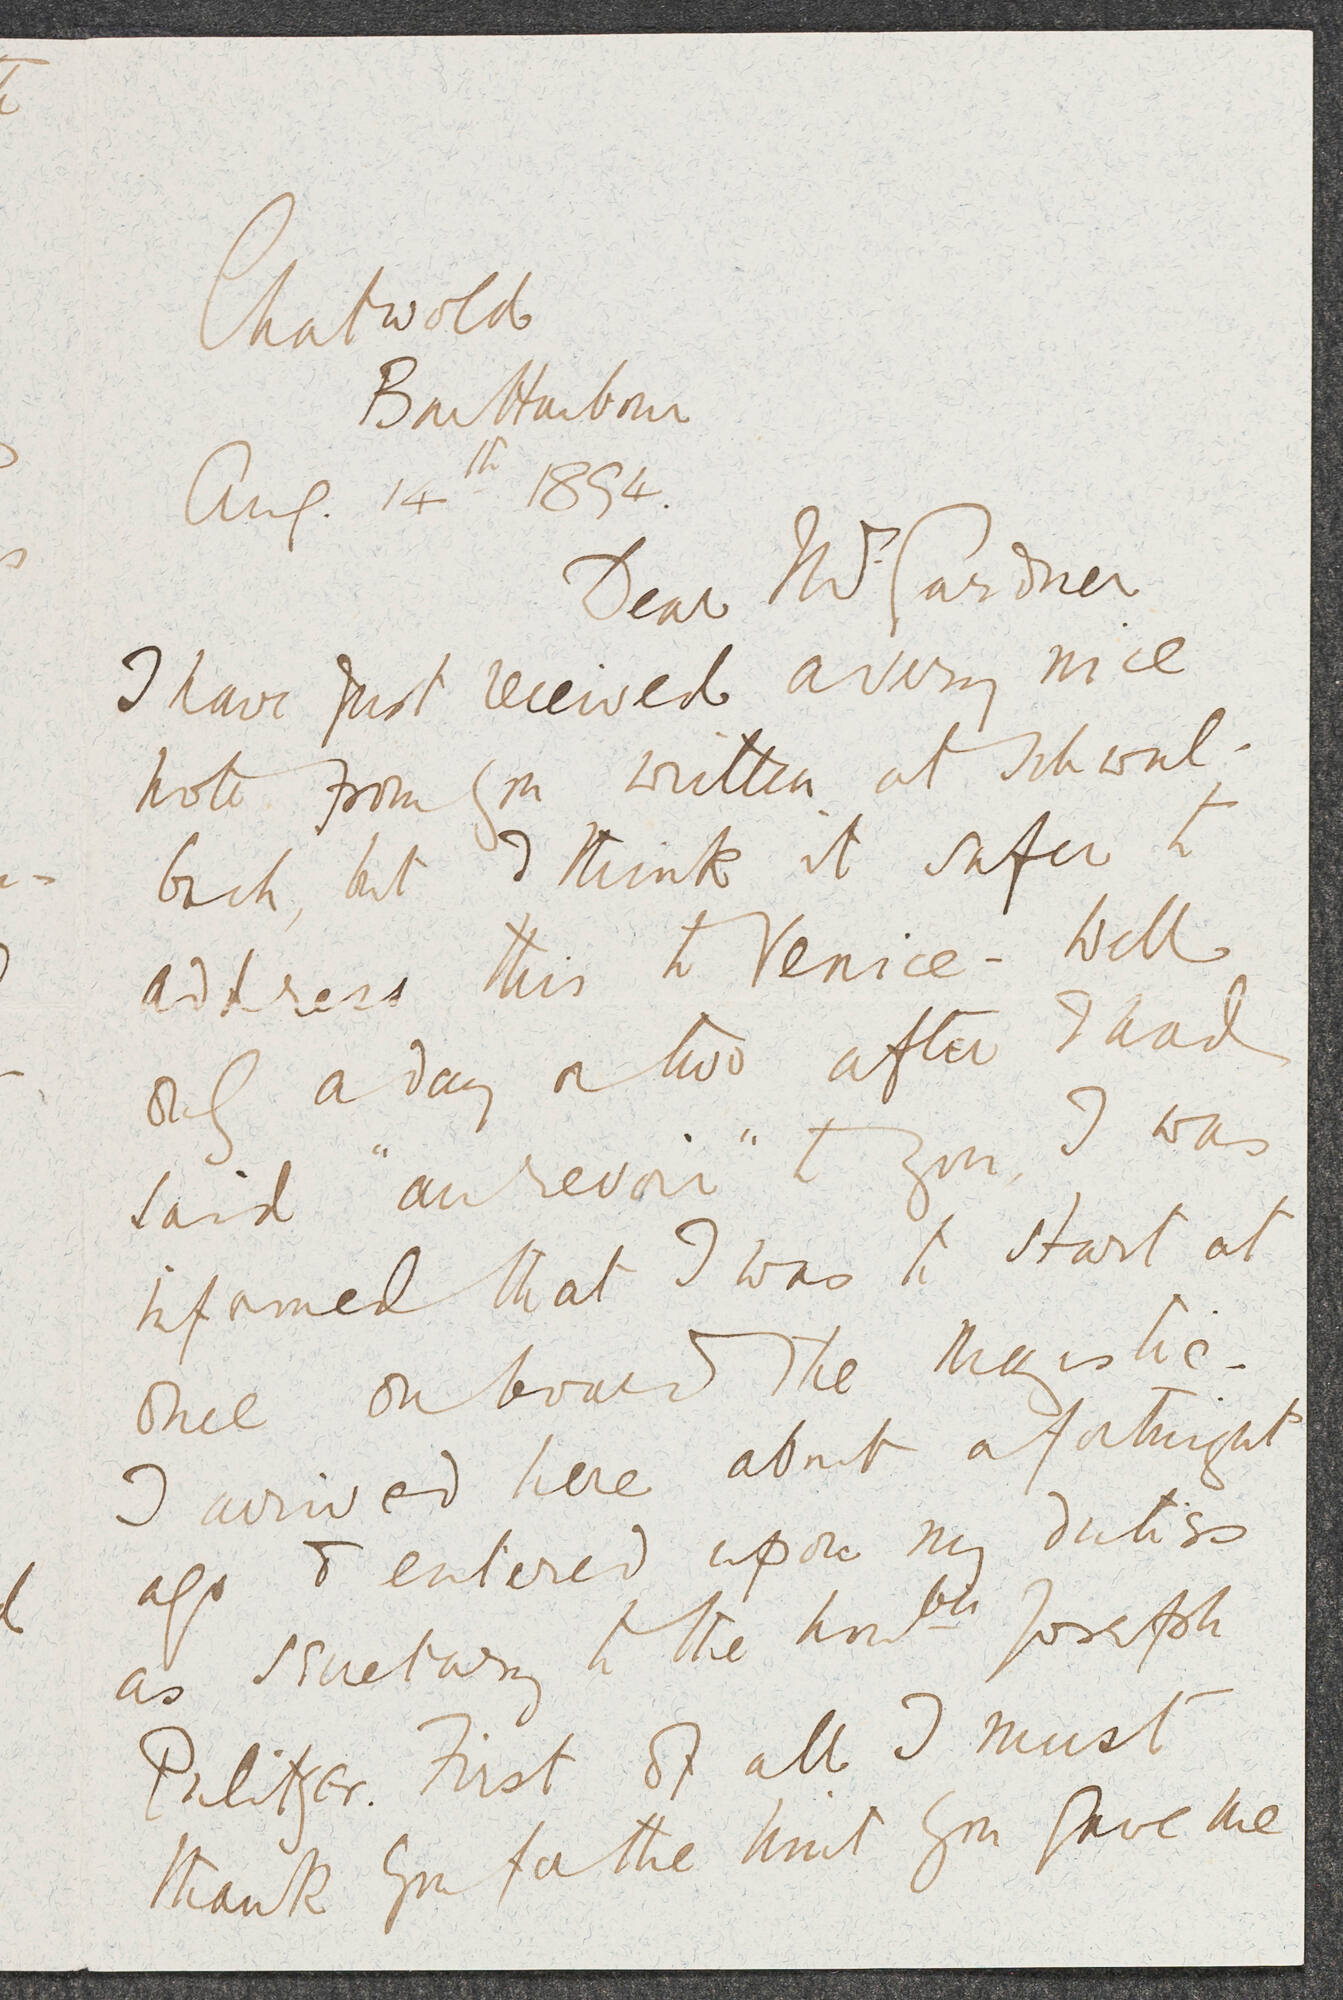 Chatwold
Bar Harbour
Aug. 14th 1894.
Dear Mrs Gardner
I have just received a very nice
note from you written at Schwal-
bach, but I think it safer to
address this to Venice - Well
only a day or two after I had
said "au revoir" to you, I was
informed that I was to start at
once on board the Majestic -
I arrived here about a fortnight
ago & entered upon my duties
as secretary to the honble Joseph
Pulitzer. First of all I must
thank you for the hint you gave me